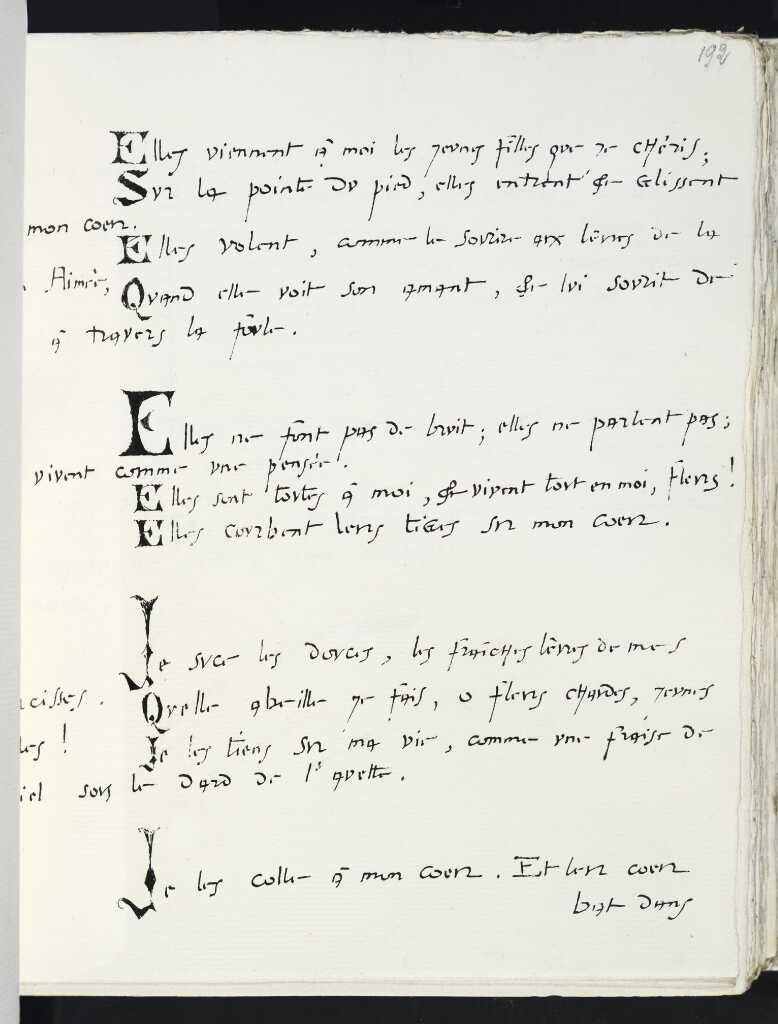 192
Elles viennent à moi les jeunes filles que je chéris;
Sur la pointe du pied, elles entrent & Glissent
mon coeur.
Elles volent, comme le sourire aux lèvres de la
Aimée,
Quand elle voit son amant, & lui sourit de
à travers la foule.
Elles ne font pas de bruit; elles ne parlent pas;
vivent comme une pensée.
Elles sont toutes à moi, & vivent tout en moi, fleurs!
Elles courbent leurs tiGes sur mon coeur.
Je suce les douces, les fraîches lèvres de mes
cisses.
Quelle abeille je fais, o fleurs chaudes, jeunes
les!
Je les tiens sur ma vie, comme une fraise de
iel sous le dard de l'avette.
Je les colle à mon coeur. Et leur coeur
bat dans